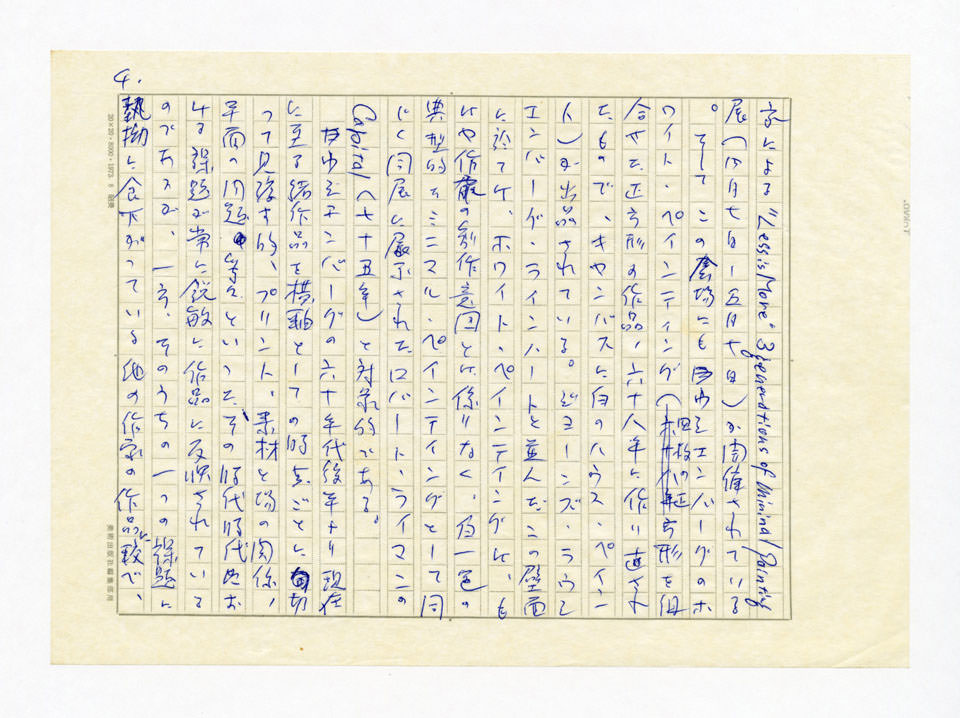 家による "Less is More" 3 generations of Minimal Painting
展(四月七日ー五月十日)が開催されている
。そしてこの会場にもラウシェンバーグのホ
ワイト・ペインティング(四枚の正方形を組
合せた正方形の作品、六十八年に作り直され
たもので、キャンバスに白のハウス・ペイン
ト)が出品されている。ジョーンズ・ラウシ
ェンバーグ・ラインハートと並んだこの壁面
に於て、ホワイト・ペインティングは、も
はや作家の制作意図とは係りなく、白一色の
典型的なミニマル・ペインティングとして同
じく同展に展示されたロバート・ライマンの
Capital(七十五年)と対象的である。
ラウシェンバーグの六十年代後半より現在
に至る諸作品を横軸としての時点ごとに切
って見渡す時、プリント、素材と場の関係、
平面の問題等々といった、その時代時代にお
ける課題が常に鋭敏に作品に反映されている
のであるが、一方、そのうちの一つの課題に
執拗に食下がっている他の作家の作品に較べ、
4.
20×20・8000・1973.
美術出版社編集部用